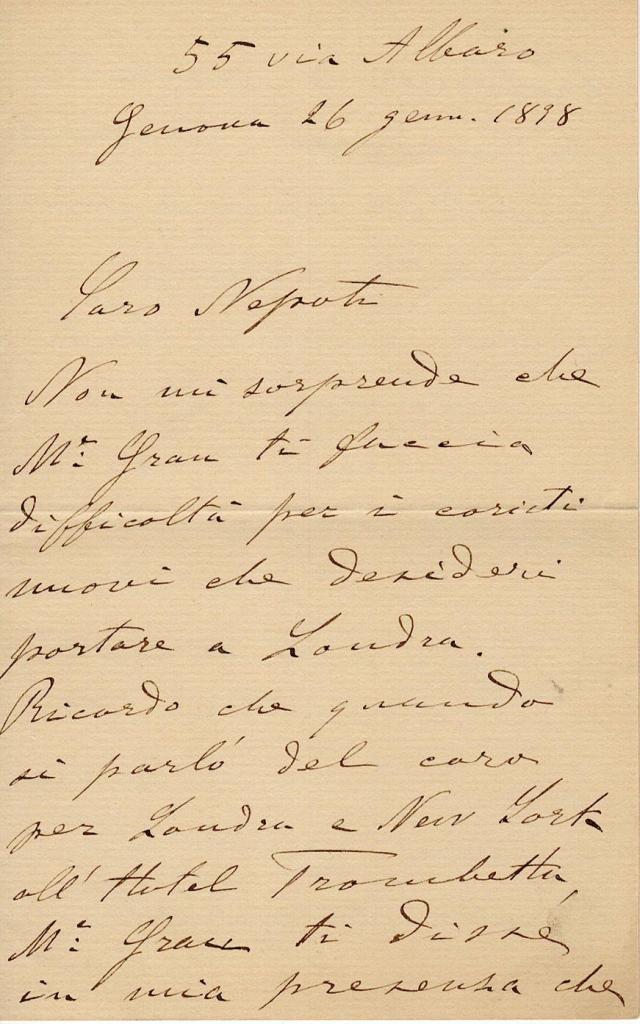 55 via Albaro
Genova 26 genn. 1898
Caro Nepoti
Non mi sorprende che
Mr: Grau ti faccia
difficoltà per i coristi
nuovi che desideri
portare a Londra.
Ricordo che quando
si parlò del coro
per Londra e New York
all' Hotel Trombetta,
Mr: Grau ti disse,
in mia presenza che